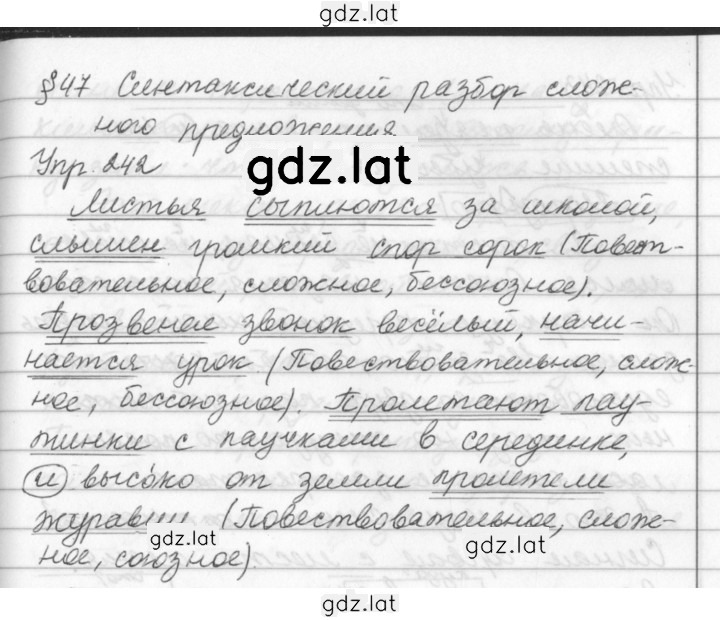 gdz.lat
§47 Синтаксический разбор слож-
ного предложения
Упр. 242
gdz.lat
Листья сыплются за школой,
слышен громкий спор сорок (Повест-
вовательное, сложное, бессоюзное).
Прозвенел звонок весёлый, начи-
нается урок (Повествовательное, слож-
ное, бессоюзное). Пролетают пау-
тинки с паучками в серединке,
и высо́ко от земли пролетели
журавли (Повествовательное, слож-
ное, союзное).
gdz.lat
gdz.lat
gdz.lat